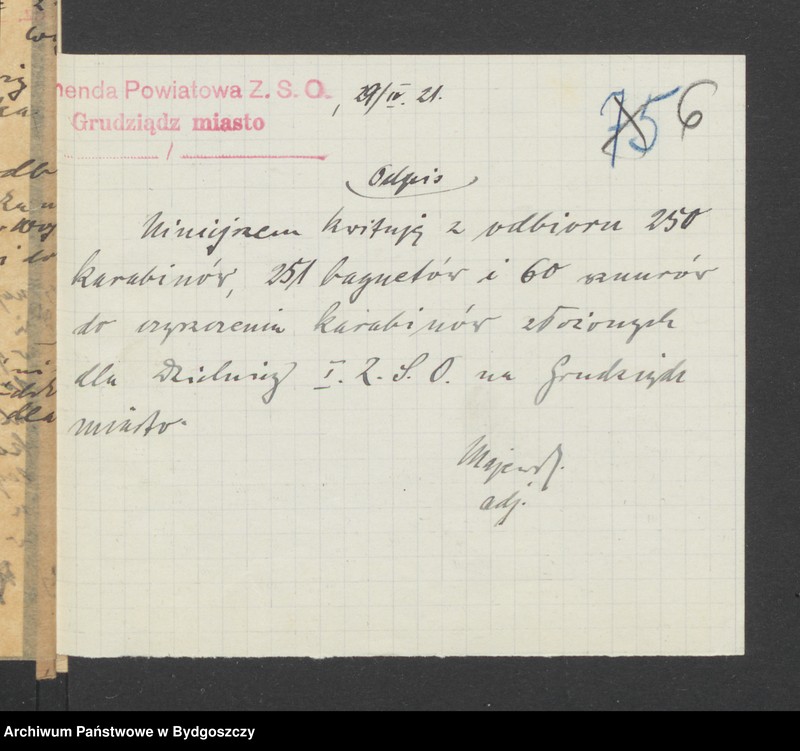 menda Powiatowa Z. S. O.
, 29/IV. 21.
Grudziądz miasto
75 6
Odpis
Niniejszem kwituję z odbioru 250
karabinów, 251 bagnetów i 60 sznurów
do czyszczenia karabinów złożonych
dla Dzielnicy I. Z. S. O. na Grudziądz
miasto.
Majewski.
adj.
Archiwum Państwowe w Bydgoszczy